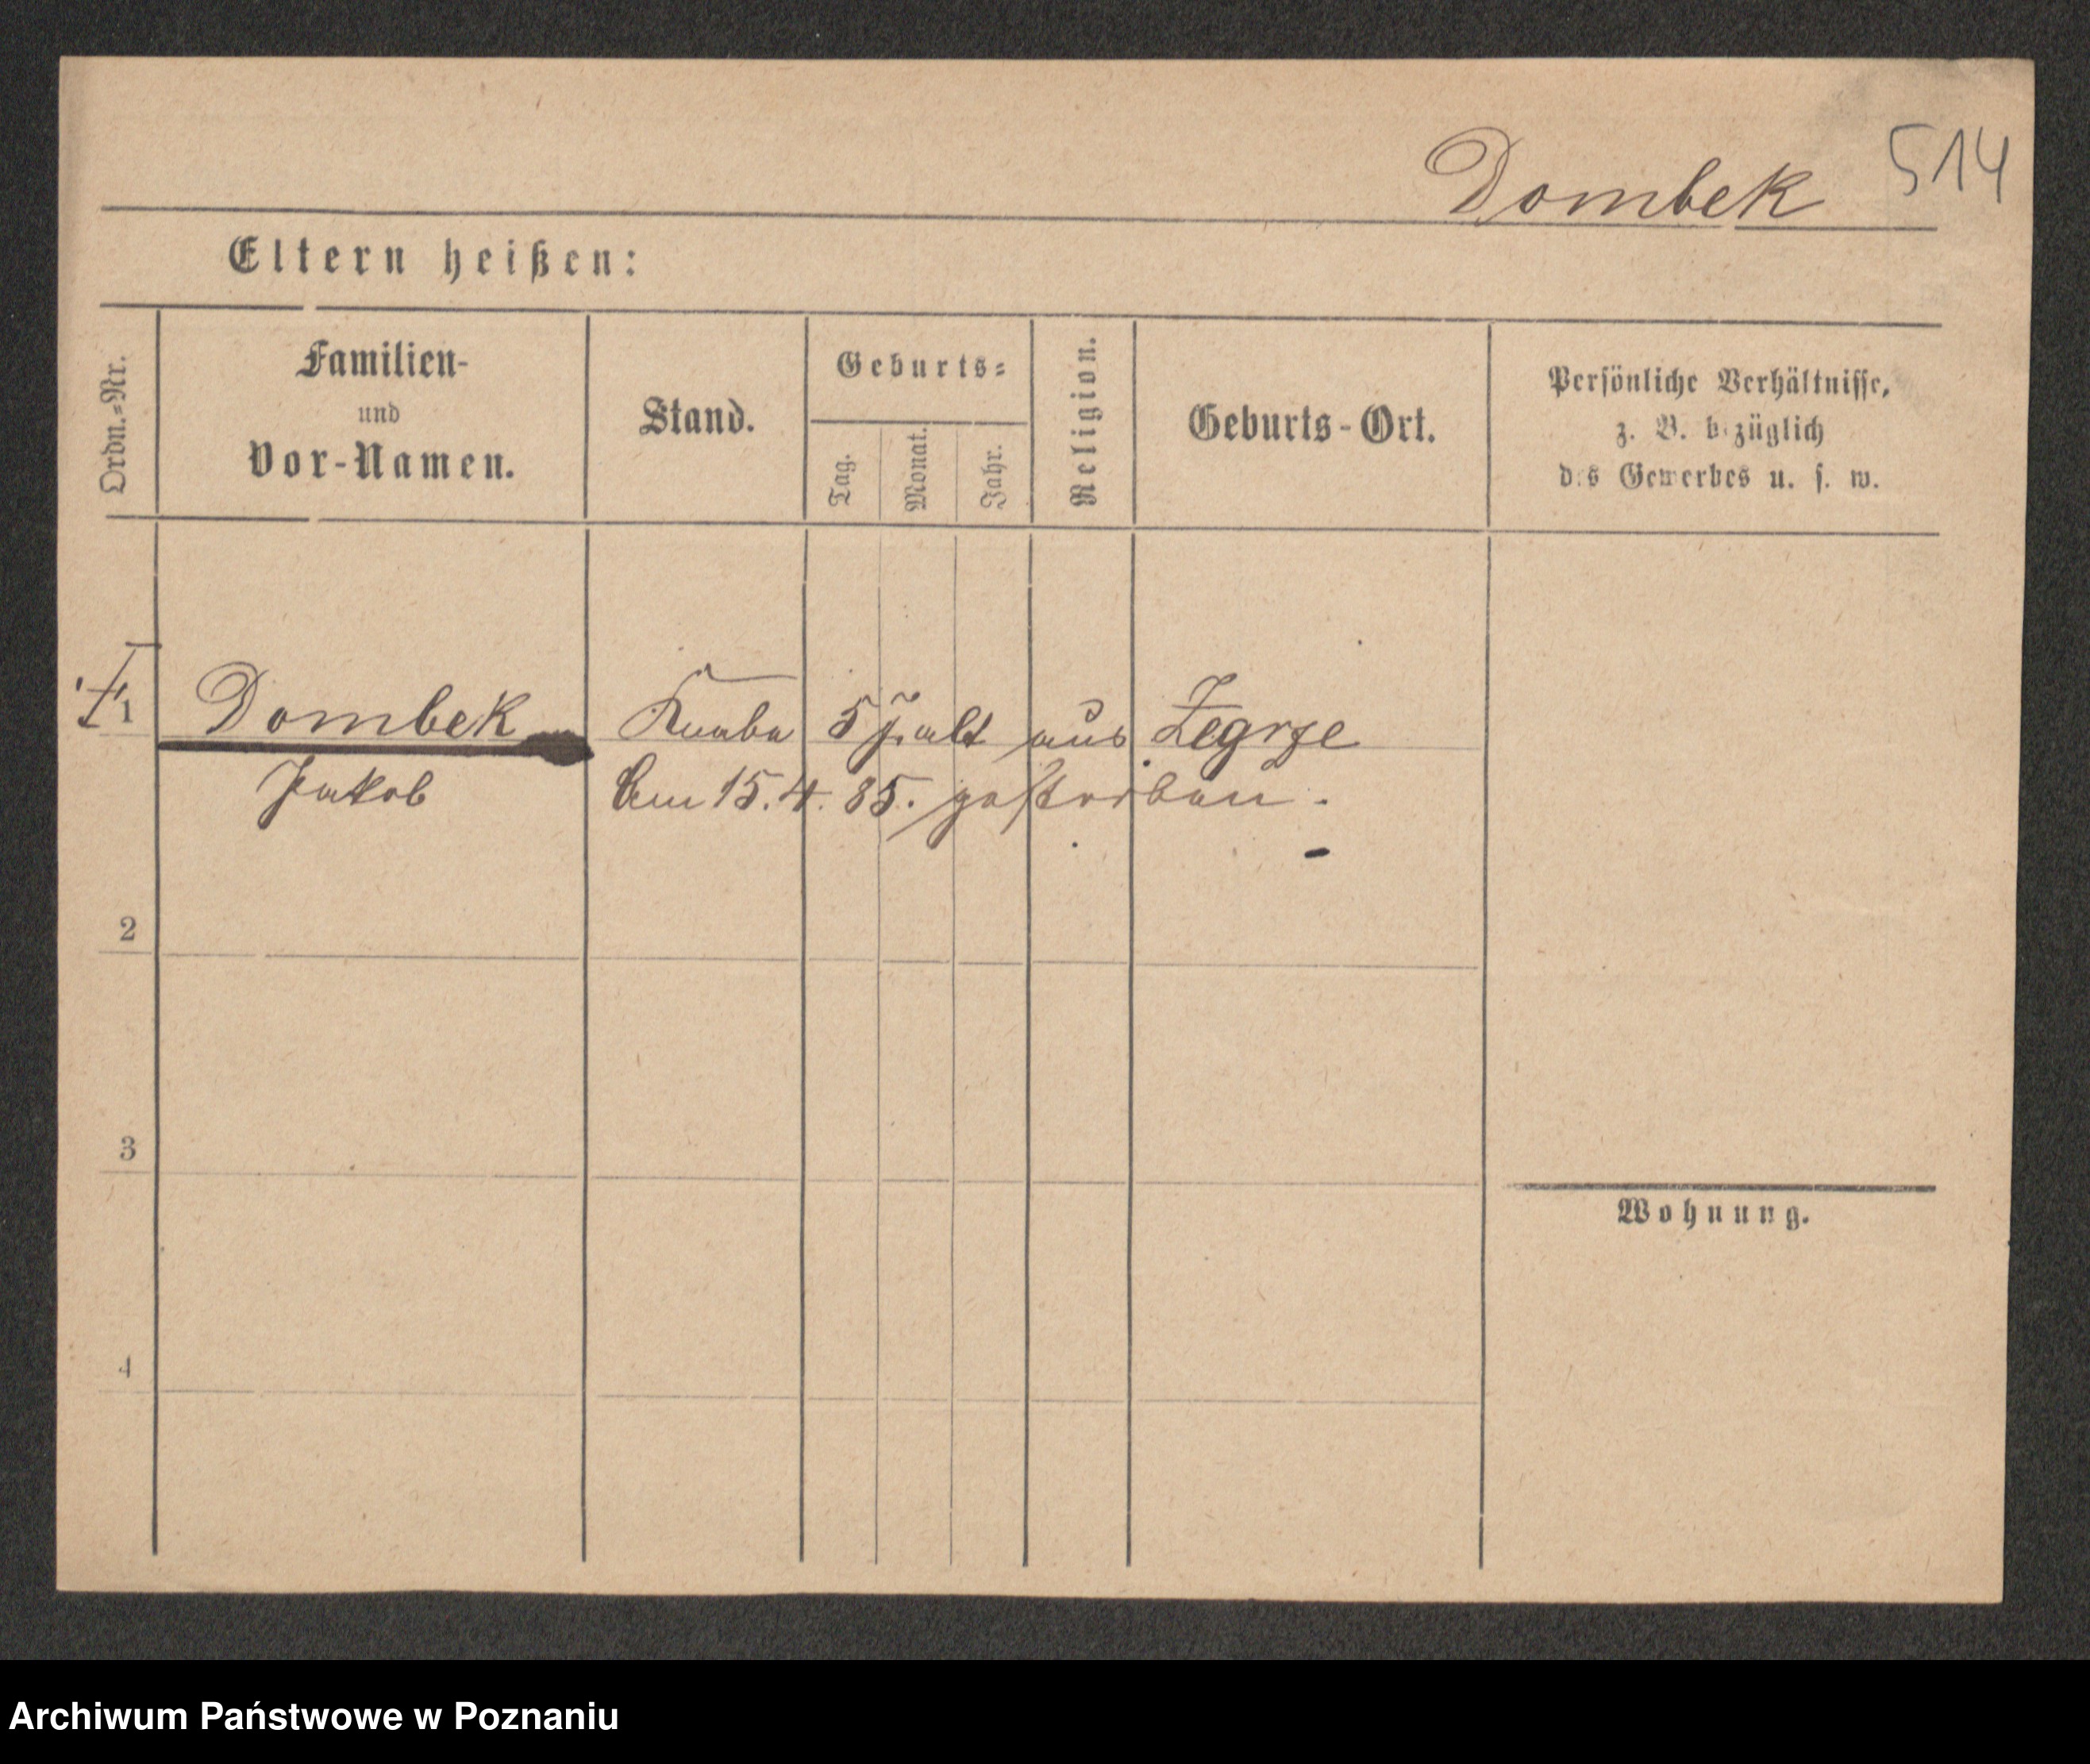 514
Dombek
Eltern heißen:
Ordn.=Nr.
Familien-
und
Vor-Namen.
Stand.
Geburts=
Tag.
Monat.
Jahr.
Religion.
Geburts-Ort.
Persönliche Verhältnisse,
z. B. bezüglich
des Gewerbes u. s. w.
1 Dombek Knabe 5 J. alt aus Zegrze
Jakob Am 15. 4. 85. gestorben.
2
3
Wohnung.
4
Archiwum Państwowe w Poznaniu